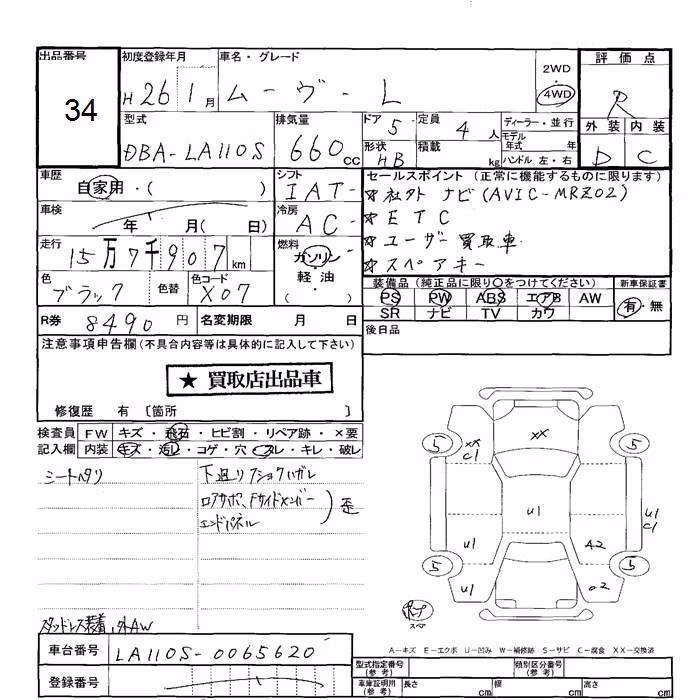 出品番号
34
初度登録年月
H 26 1月
車名・グレード
ムーヴ・L
2WD
4WD
評価点
R
外装 内装
D C
型式
DBA-LA110S
排気量
660cc
ドア 5
定員 4人
形状 HB
積載 kg
ディーラー・並行
モデル年式 年
ハンドル 左・右
車歴
自家用・( )
シフト
IAT-
セールスポイント (正常に機能するものに限ります)
☆社外ナビ(AVIC-MRZ02)
☆ETC
☆ユーザー買取車
☆スペアキー
車検
年 月( 日)
冷房
AC-
走行
15万7千907km
燃料
ガソリン
軽・油
( ・ )
色
ブラック
色替
色コード
X07
装備品 (純正品に限り○をつけてください)
PS PW ABS エアB AW
SR ナビ TV カワ
新車保証書
有・無
R券 8490円
名変期限 月 日
後日品
注意事項申告欄(不具合内容等は具体的に記入して下さい)
★ 買取店出品車
修復歴 有 〔箇所 〕
検査員 FW キズ・飛石・ヒビ割・リペア跡・×要
記入欄 内装 キズ・汚レ・コゲ・穴・スレ・キレ・破レ
シートヘタリ
下廻りアショウハガレ
ロアサポ、Fサイドメンバー
エンドパネル
歪
スタッドレス装着、外AW
5
XX
C1
XX
5
U1
U1
C1
U1
A2
5
U1
a2
5
スペア
A-キズ E-エクボ U-凹み W-補修跡 S-サビ C-腐食 XX-交換済
車台番号 LA110S-0065620
登録番号
型式指定番号(参考)
類別区分番号(参考)
車庫証明用(参考)
長さ cm
幅 cm
高さ cm